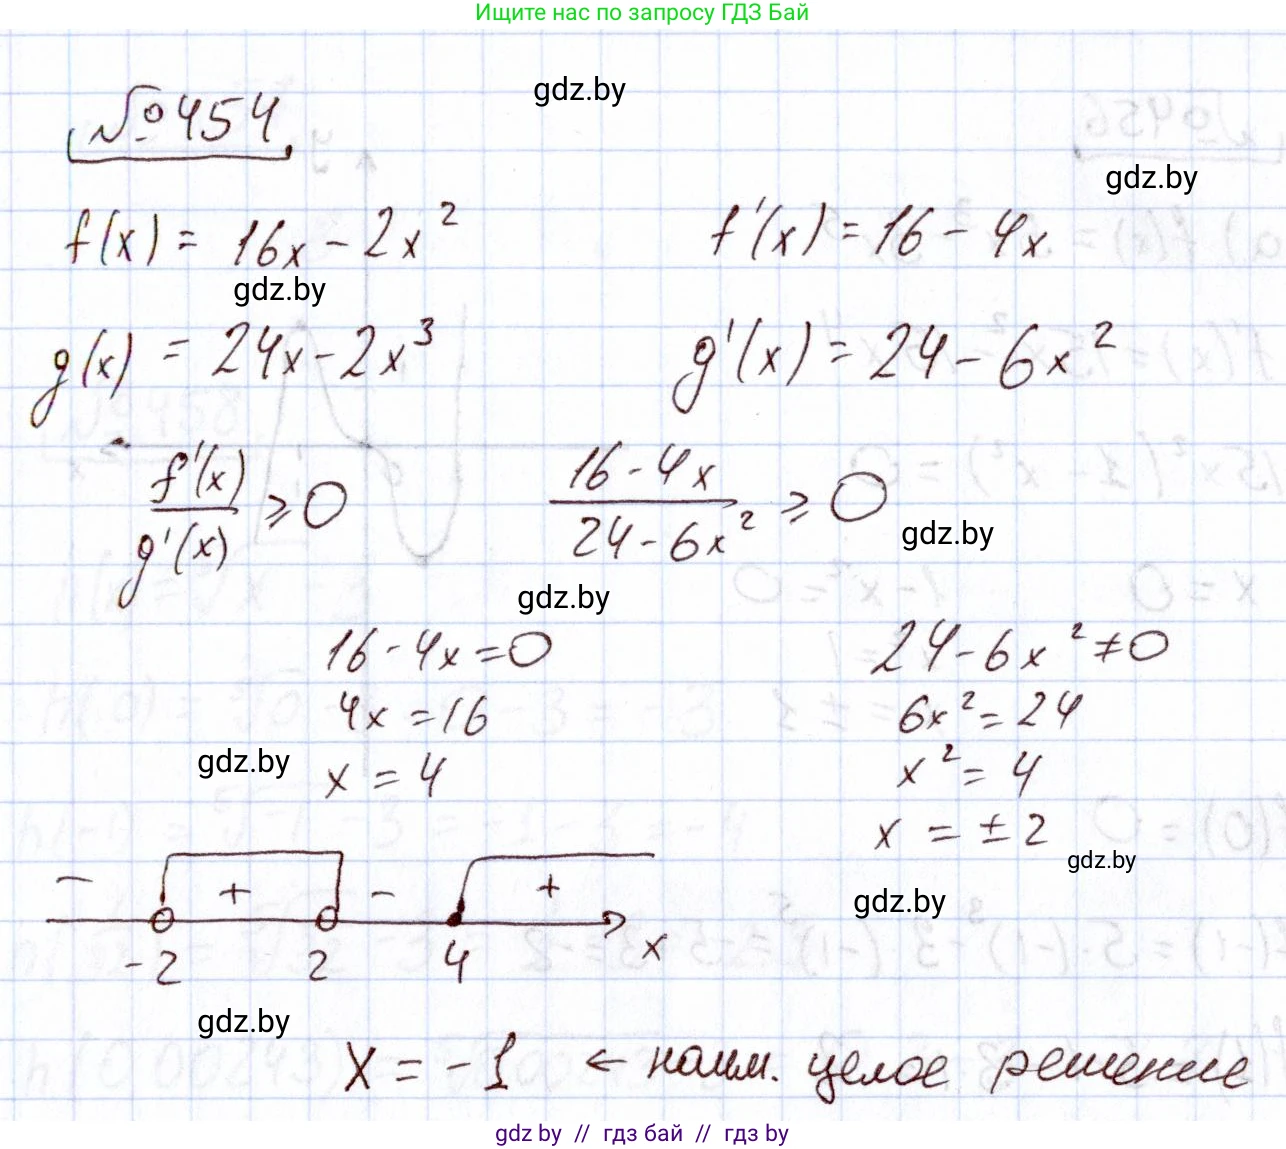 Ищите нас по запросу ГДЗ Бай
gdz.by
№454
gdz.by
f(x) = 16x - 2x²
f'(x) = 16 - 4x
gdz.by
g(x) = 24x - 2x³
g'(x) = 24 - 6x²
f'(x)/g'(x) ⩾ 0
(16 - 4x)/(24 - 6x²) ⩾ 0
gdz.by
gdz.by
16 - 4x = 0
24 - 6x² ≠ 0
4x = 16
6x² = 24
gdz.by
x = 4
x² = 4
x = ± 2
gdz.by
− + − +
gdz.by
-2 2 4 x
gdz.by
x = -1 ← наим. целое решение
gdz by // гдз бай // гдз by